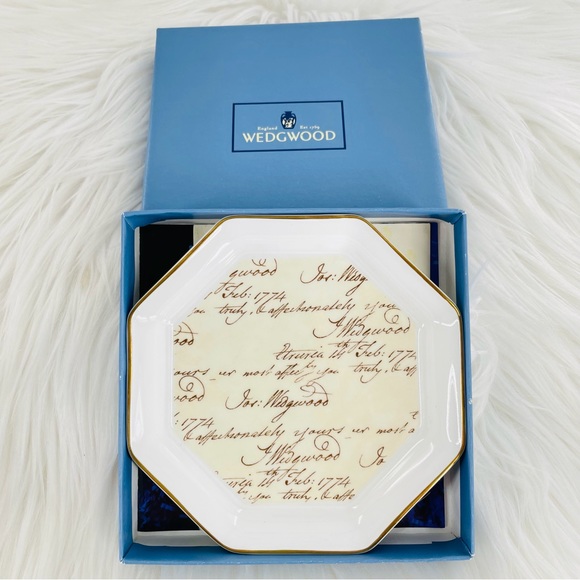 England Est 1759
WEDGWOOD
gwood Jos: Wedg
Feb: 1774
truly, & affectionately you
ood J Wedgwood
Etruria 14th Feb: 1774
ours er most affecly you truly, & aff
Jos: Wedgwood
1774
& affectionately yours er most a
J Wedgwood Jo
Etruria 14th Feb: 1774
you truly, & affe